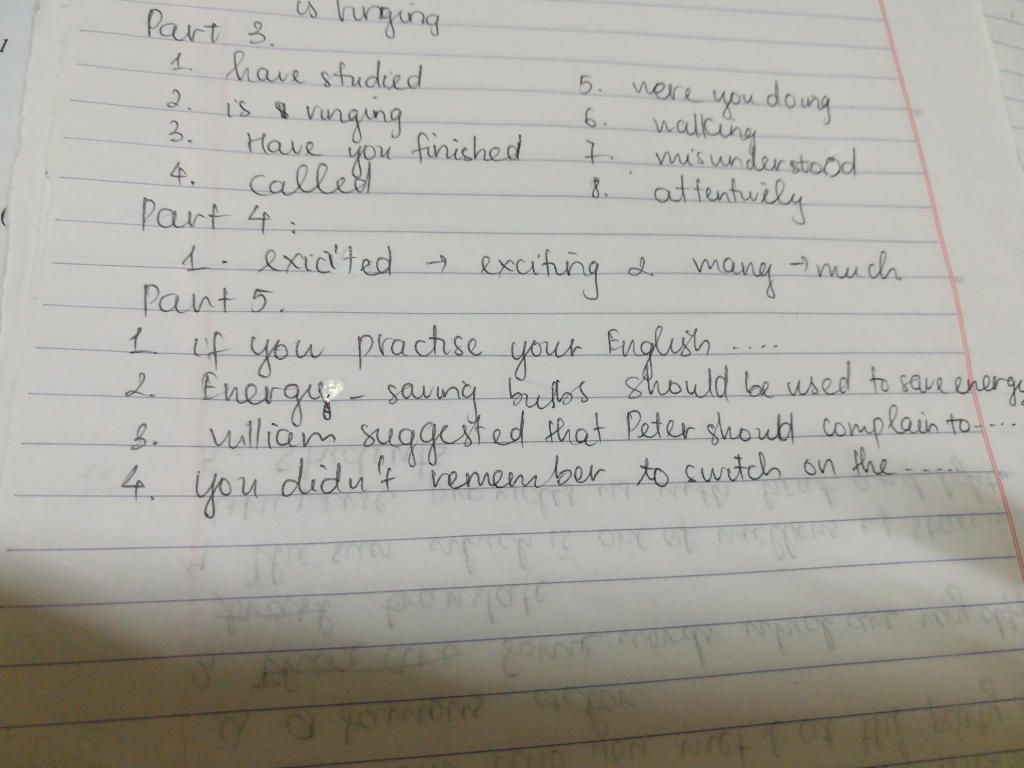 is ringing
Part 3.
1. have studied 5. were you doing
2. is ringing 6. walking
3. Have you finished 7. misunderstood
4. called 8. attentively
Part 4:
1. exicited → exciting 2. many → much
Part 5.
1 if you practise your English ....
2. Energy-saving bulbs should be used to save energy
3. william suggested that Peter should complain to....
4. you didn't remember to switch on the .....